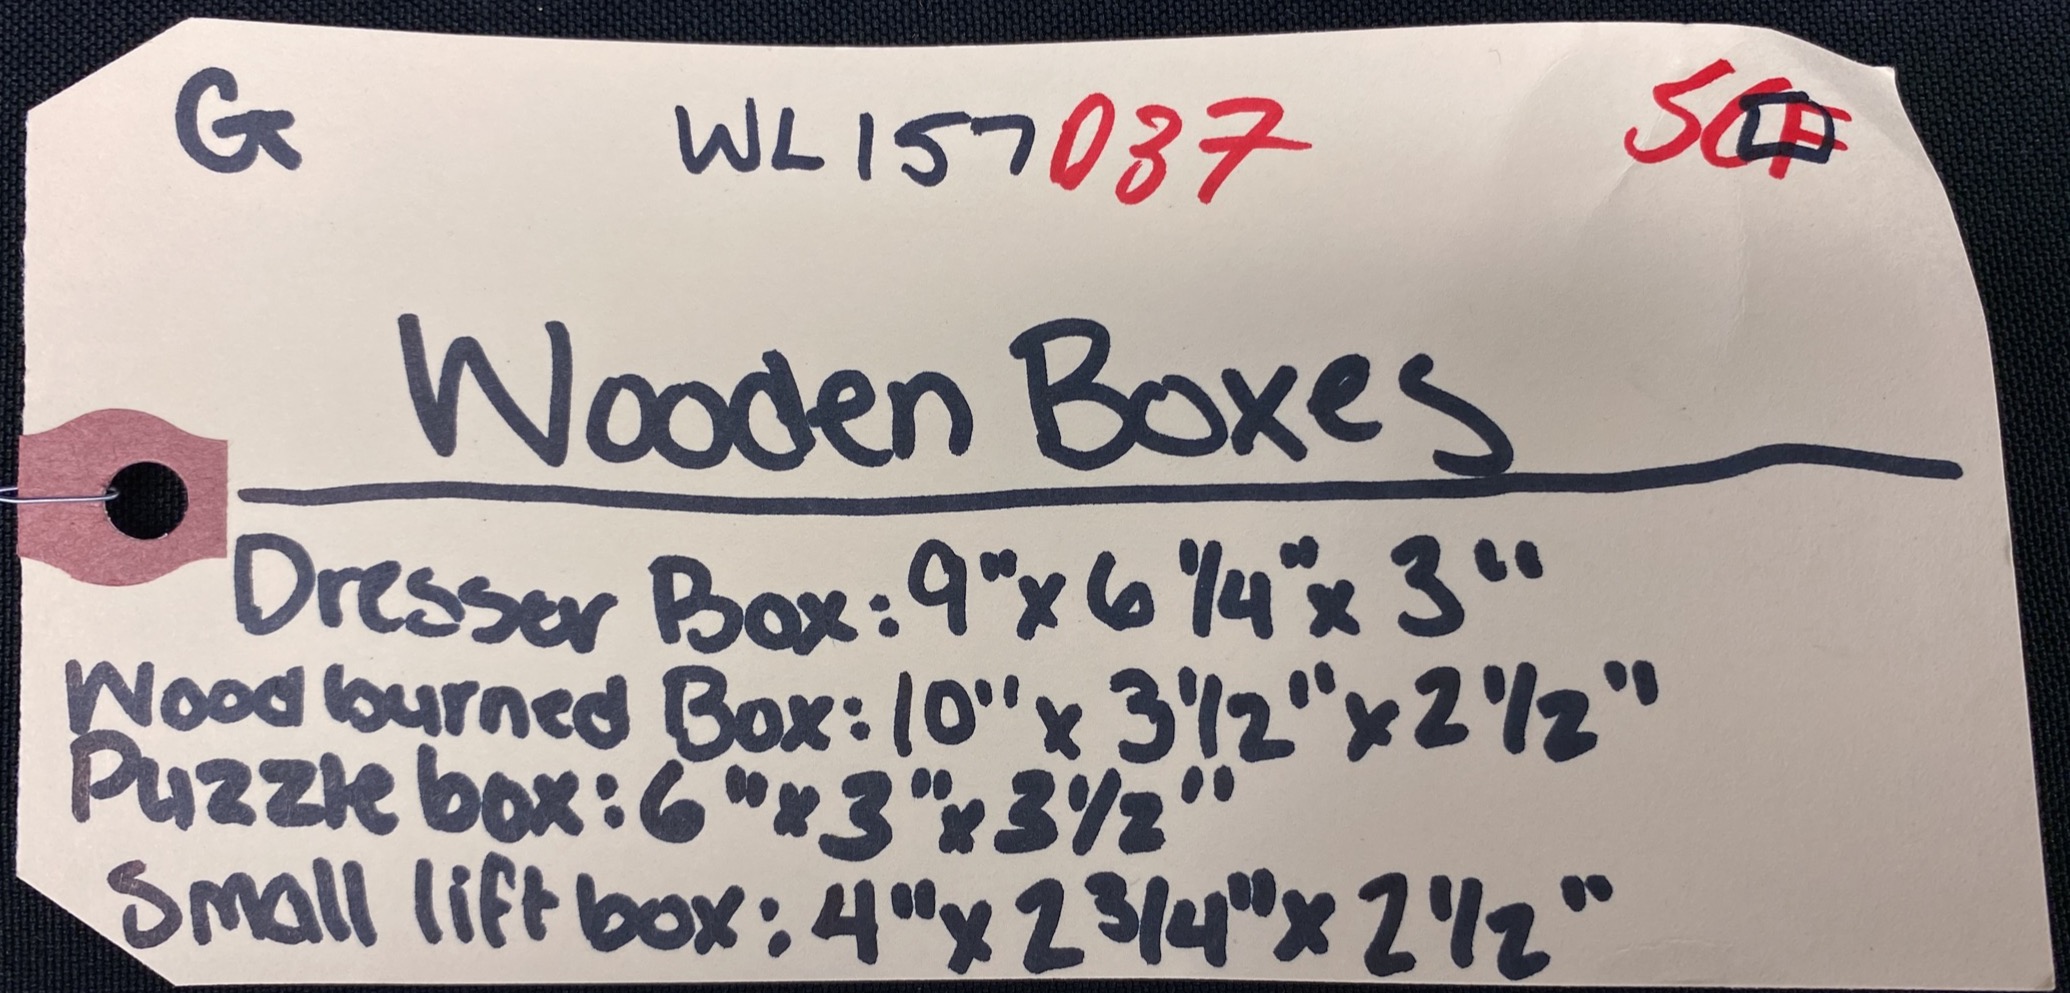 G WL157037 SCF
Wooden Boxes
Dresser Box: 9" x 6 1/4" x 3"
Wood burned Box: 10" x 3 1/2" x 2 1/2"
Puzzle box: 6" x 3" x 3 1/2"
Small lift box: 4" x 2 3/4" x 2 1/2"